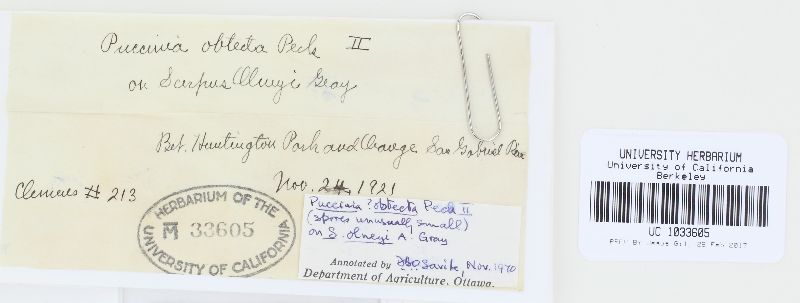 Puccinia obtecta Peck II
on Scirpus Olneyi Gray
Bet. Huntington Park and Orange San Gabriel Riv
Clemens # 213
Nov. 24, 1921
HERBARIUM OF THE
M 33605
UNIVERSITY OF CALIFORNIA
Puccinia ?obtecta Peck II
(spores unusually small)
on S. olneyi A. Gray
Annotated by DBO Savile, Nov. 1970
Department of Agriculture, Ottawa.
UNIVERSITY HERBARIUM
University of California
Berkeley
UC 1033605
By: Jesus Gil, 28 Feb 2017